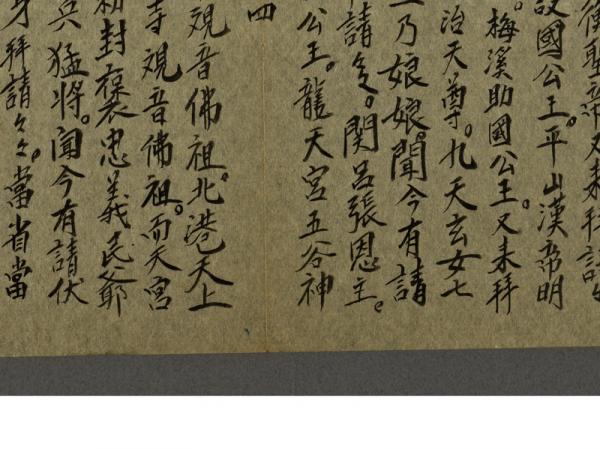 衡聖帝又來拜請
設國公王。平山漢帝明
。梅溪助國公王。又來拜
治天尊。九天玄女七
乃娘娘。聞今有請
請々。関呂張恩主。
公王。龍天宮五谷神
四
观音佛祖。北港天上
寺观音佛祖。而天宮
初封褒忠義民爺
兵猛將。聞今有請伏
身拜請々々。當省當